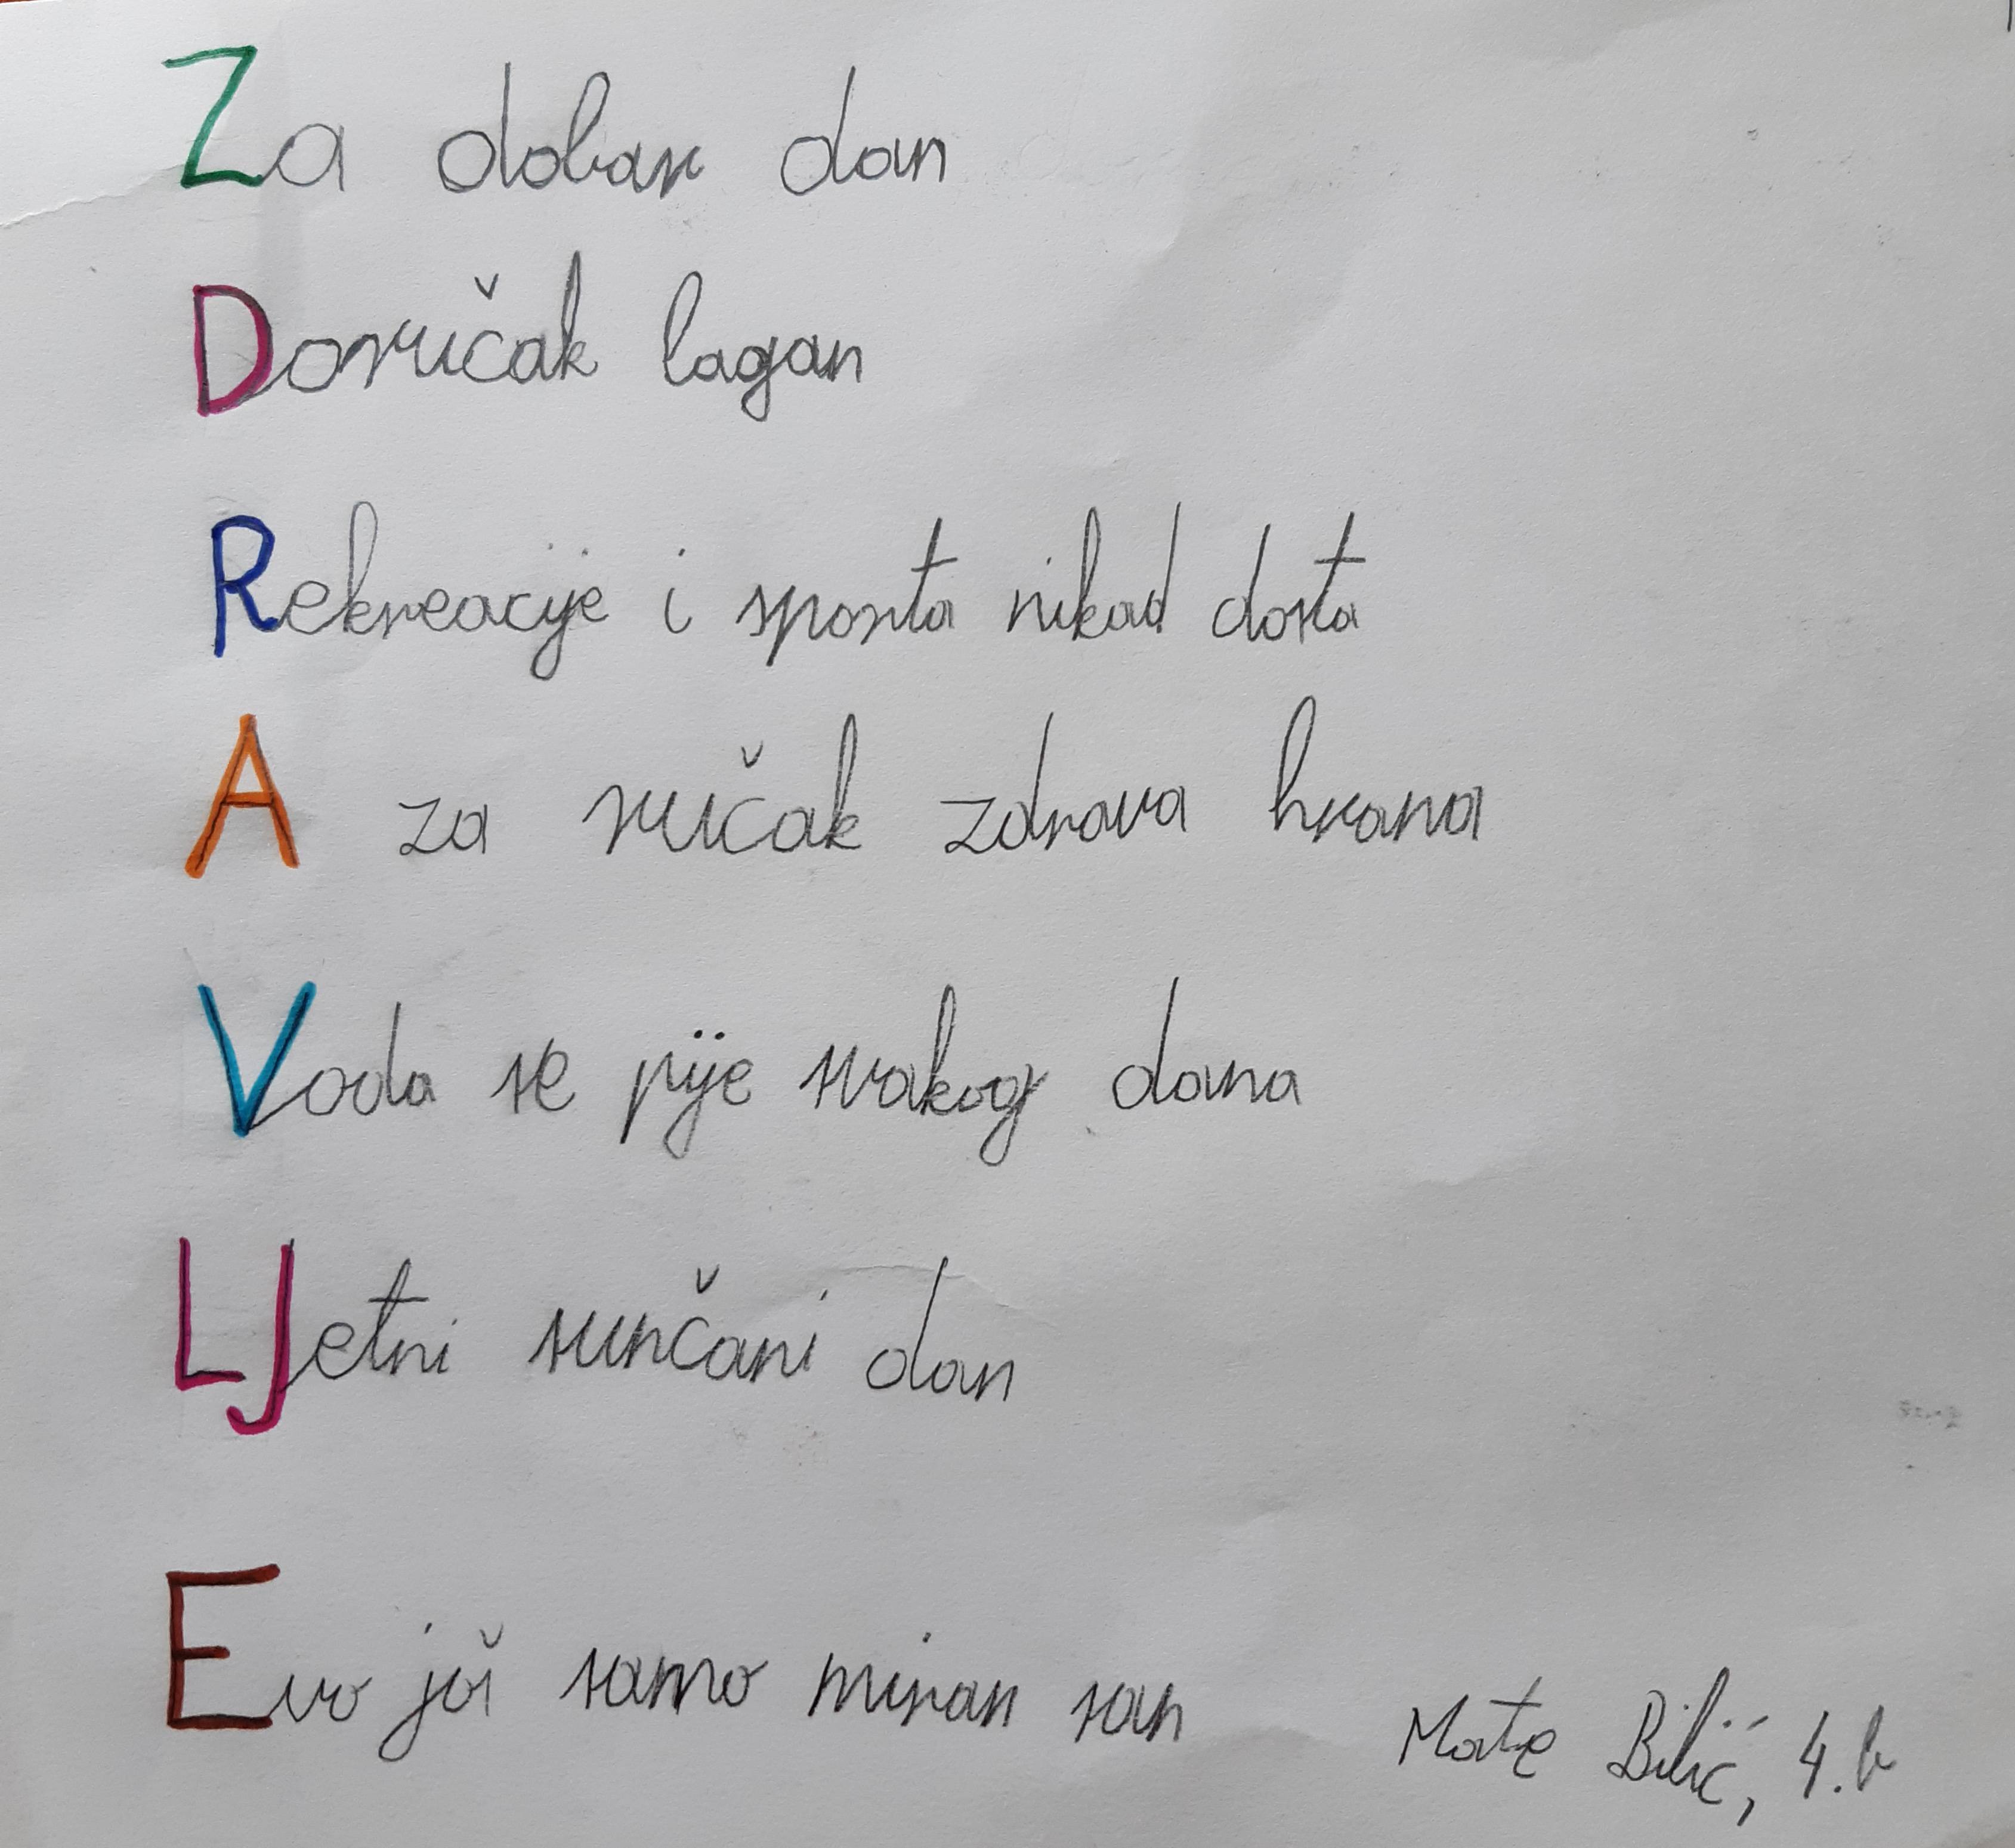 Za dobar dan
Doručak lagan
Rekreacije i sporta nikad dosta
A za ručak zdrava hrana
Voda se pije svakog dana
LJetni sunčani dan
Evo još samo miran san
Mate Bilić, 4.b